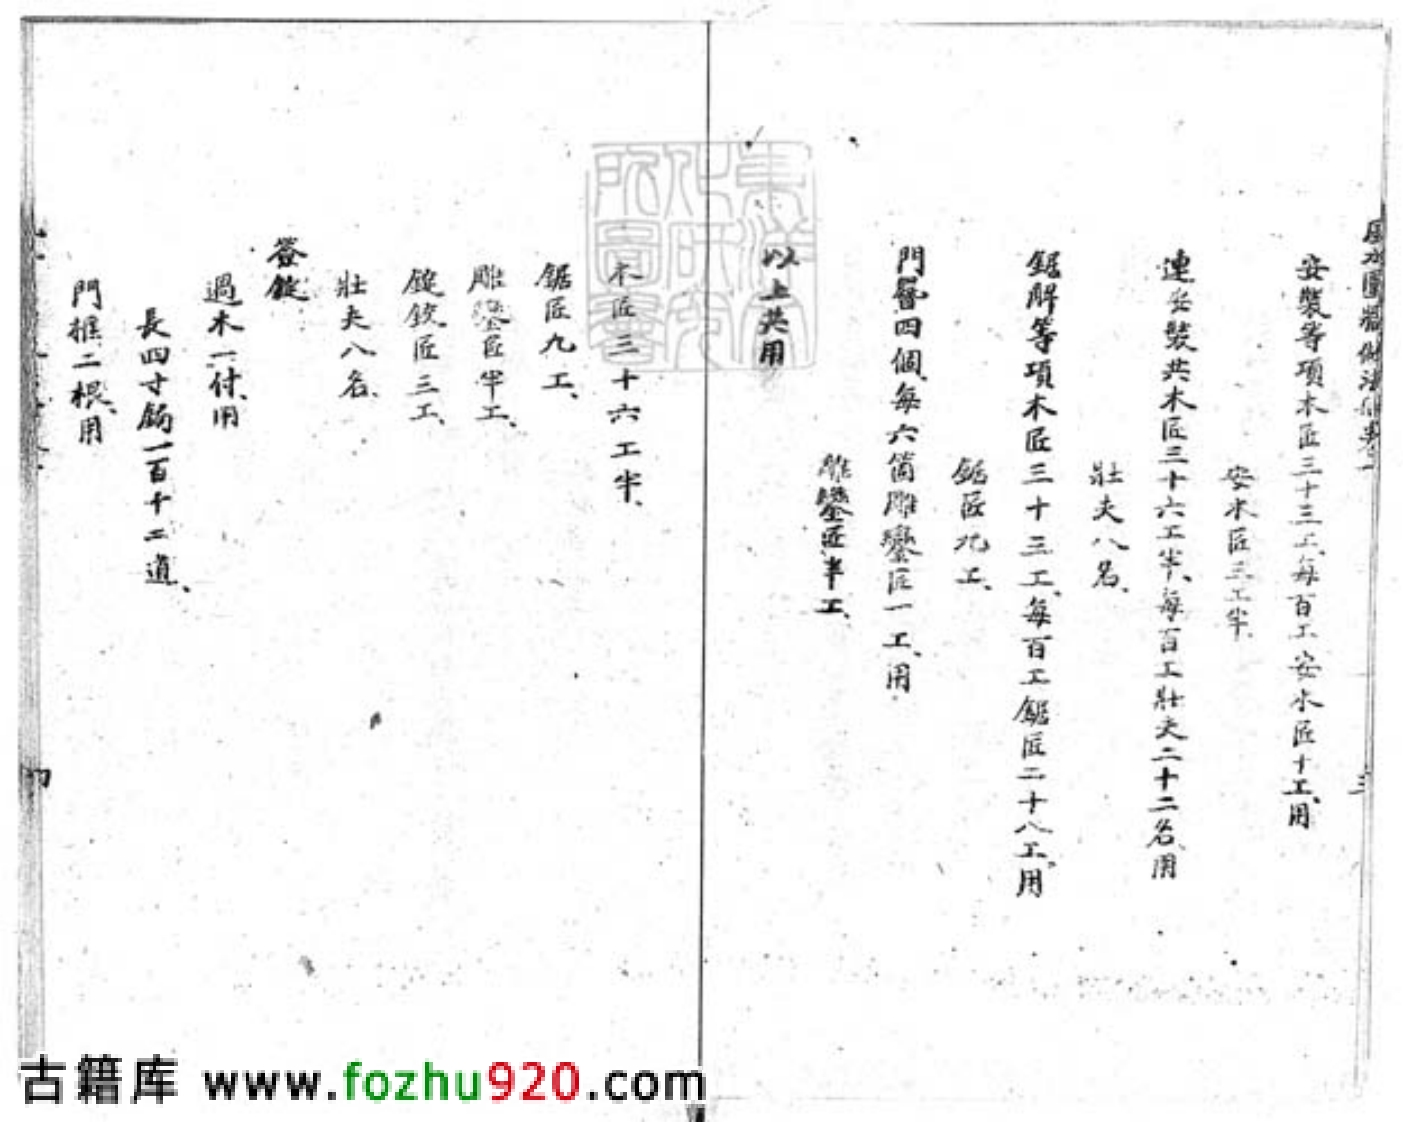 安裝等項木匠三十三工、每百工安木匠十工、用
安木匠三工半、
連安裝共木匠三十六工半、每百工壯夫二十二名、用
壯夫八名、
鋸解等項木匠三十三工、每百工鋸匠二十八工、用
鋸匠九工、
門簪四個、每六箇雕鑾匠一工、用
雕鑾匠半工、
以上共用
木匠三十六工半、
鋸匠九工、
雕鑾匠半工、
錠鉸匠三工、
壯夫八名、
簽錠
過木一付、用
長四寸鋦一百十二道、
門框二根、用
三
四
東洋文化研究所圖書
古籍库 www.fozhu920.com